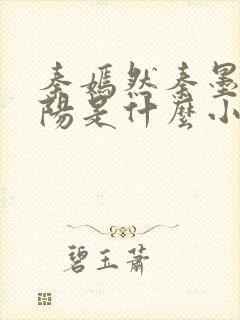 秦嫣然秦墨
陽是什麼小
碧玉蕭